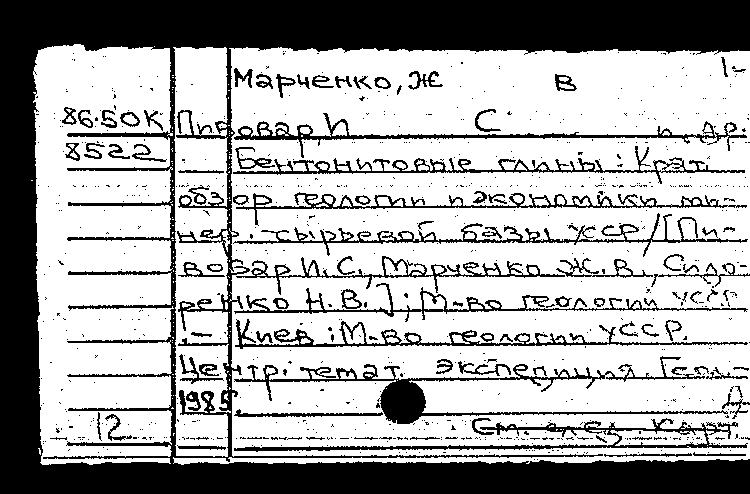 1-
Марченко, Ж В
86.50К Пивовар, И С. и др.
8522 Бентонитовые глины: Крат.
обзор геологии и экономики ми-
нер.-сырьевой базы УССР/[Пи-
вовар И.С., Марченко Ж.В., Сидо-
ренко Н.В.]; М-во геологии УССР
.- Киев: М-во геологии УССР.
Центр. темат. экспедиция. Геол-
1985.
12 См. след. карт.